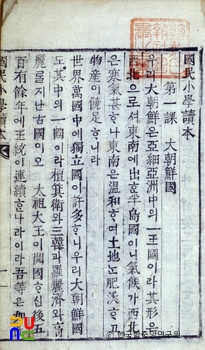 國民小學讀本
第一課 大朝鮮國
우리大朝鮮은亞細亞洲中의一王國이라其形은
西北으로셔東南에出ᄒᆞᆫ半島國이니氣候가西北
은寒氣甚ᄒᆞ나東南은溫和ᄒᆞ며土地ᄂᆞᆫ肥沃ᄒᆞ고
物産이饒足ᄒᆞ니라
世界萬國中에獨立國이許多ᄒᆞ니우리大朝鮮國
도其中의一國이라檀箕衛와三韓과羅麗濟와高
麗를지난古國이오 太祖大王이開國ᄒᆞ신後五
百有餘年에王統이連續ᄒᆞᆫ나라이라吾等은如
國民小學讀本
一